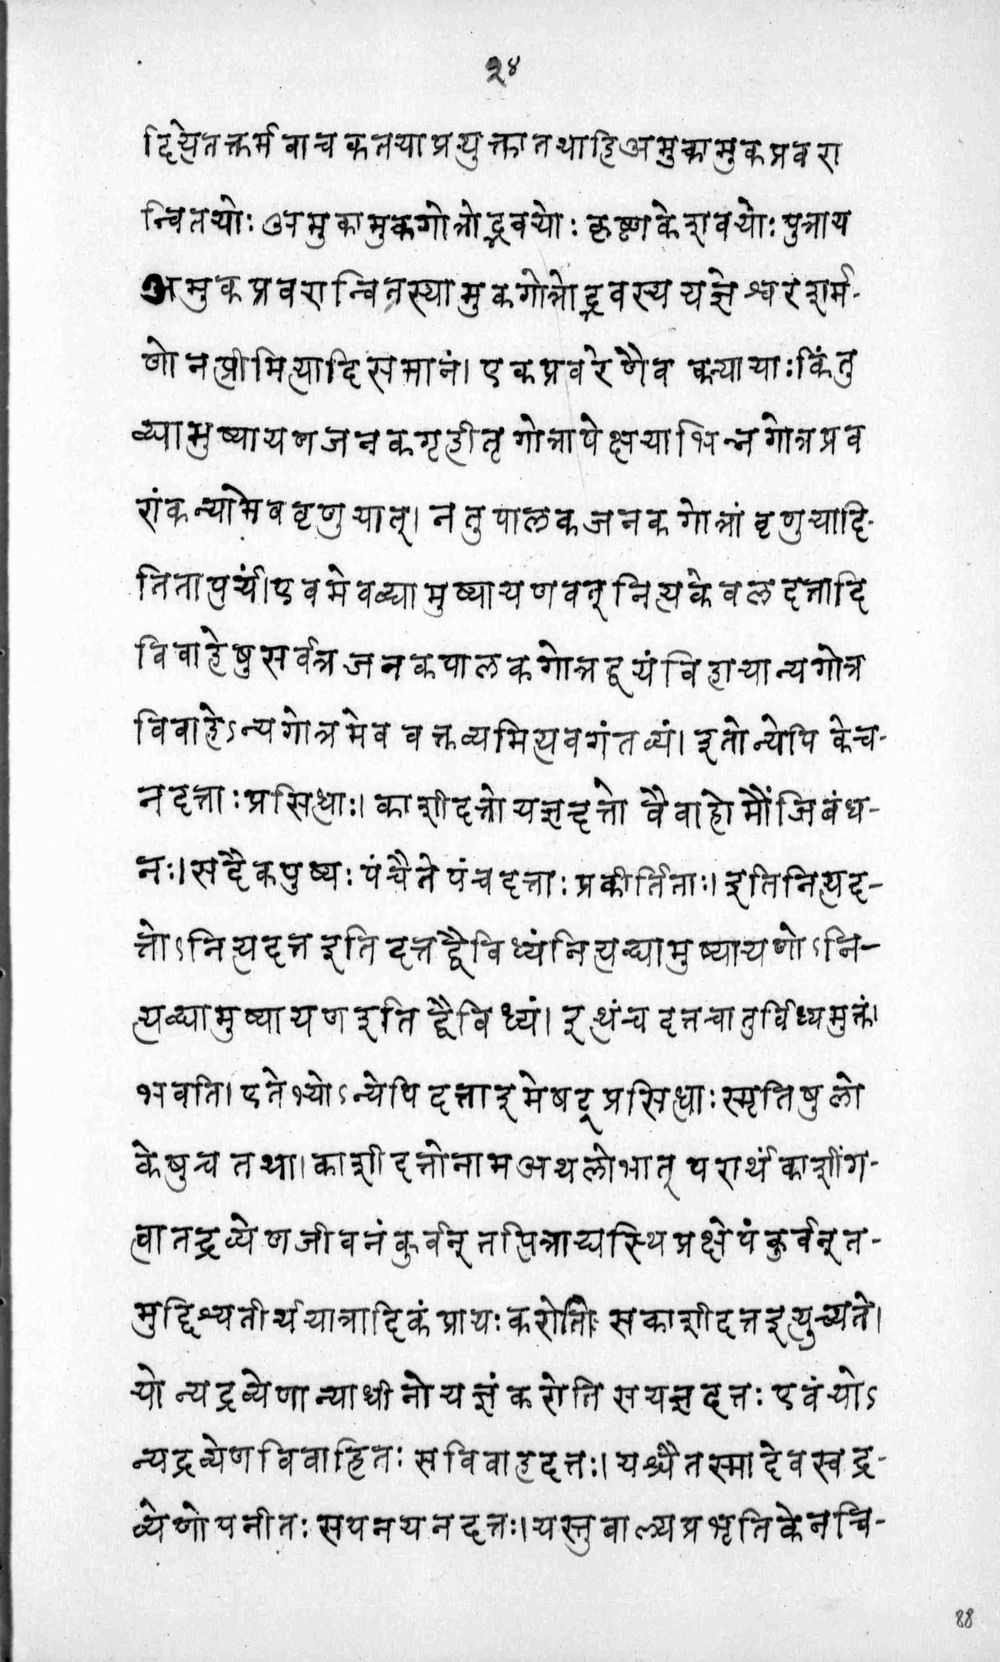 २४
द्दिश्येतत्कर्मवाचकतयाप्रयुक्तातथाहिअमुकामुकप्रवरा
न्वितयोः अमुकामुकगोत्रोद्भवयोः कृष्णकेशवयोः पुत्राय
अमुकप्रवरान्वितस्यामुकगोत्रोद्भवस्य यज्ञेश्वरशर्म-
णो नप्त्रीमित्यादिसमानं। एकप्रवरेणैव कन्यायाः किंतु
व्द्यामुष्यायणजनकगृहीतृगोत्रापेक्षयाभिन्नगोत्रप्रव
रांकन्यामेववृणुयात्। नतु पालकजनकगोत्रां वृणुयादि-
तितात्पुर्यं। एवमेवव्द्यामुष्यायणवत् नित्यकेवलदत्तादि
विवाहेषुसर्वत्रजनकपालकगोत्रद्वयंविहायान्यगोत्र
विवाहेऽन्यगोत्रमेव वक्तव्यमित्यवगंतव्यं। इतोन्येपि केच-
नदत्ताः प्रसिध्धाः। काशीदत्तोयज्ञदत्तो वैवाहोमौंजिबंध-
नः। सदैकपुष्यः पंचैते पंचदत्ताः प्रकीर्तिताः। इतिनित्यद-
त्तोऽनित्यदत्तइतिदत्तद्वैविध्यंनित्यव्द्यामुष्यायणोऽनि-
त्यव्द्यामुष्यायणइति द्वैविध्यं। इत्थंच दत्तचातुर्विध्यमुक्तं।
भवति। एतेभ्योऽन्येपि दत्ताइमेषट् प्रसिध्धाः स्मृतिषुलो
केषुच तथा। काशीदत्तोनामअथलोभात् परार्थंकाशींग-
त्वातद्रव्येणजीवनंकुर्वन् तत्पित्राद्यस्थिप्रक्षेपंकुर्वन् त-
मुद्दिश्यतीर्थयात्रादिकंप्रायः करोति सकाशीदत्तइत्युच्यते।
योन्यद्रव्येणान्याधीनोयज्ञंकरोति सयज्ञदत्तः एवंयोऽ
न्यद्रव्येणविवाहितः सविवाहदत्तः। यश्चैतस्मादेवस्वद्र-
व्येणोपनीतः सपनयनदत्तः। यस्तुबाल्यप्रभृतिकेनचि-
२४